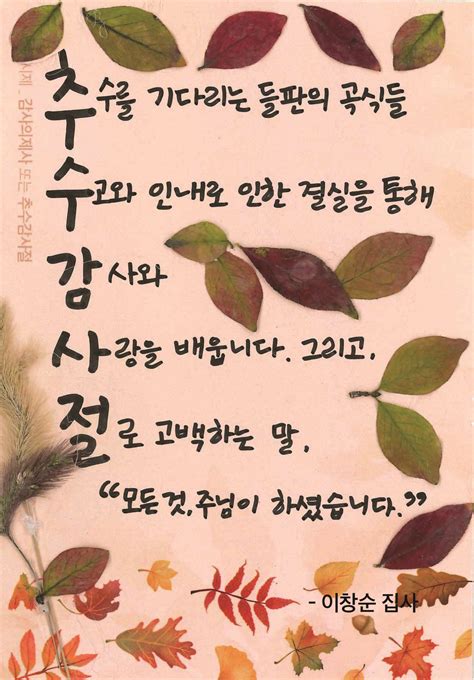 추수를 기다리는 들판의 곡식들
수고와 인내로 인한 결실을 통해
감사와
사랑을 배웁니다. 그리고,
절로 고백하는 말,
“모든것, 주님이 하셨습니다.”
- 이창순 집사
시제 - 감사의제사 또는 추수감사절